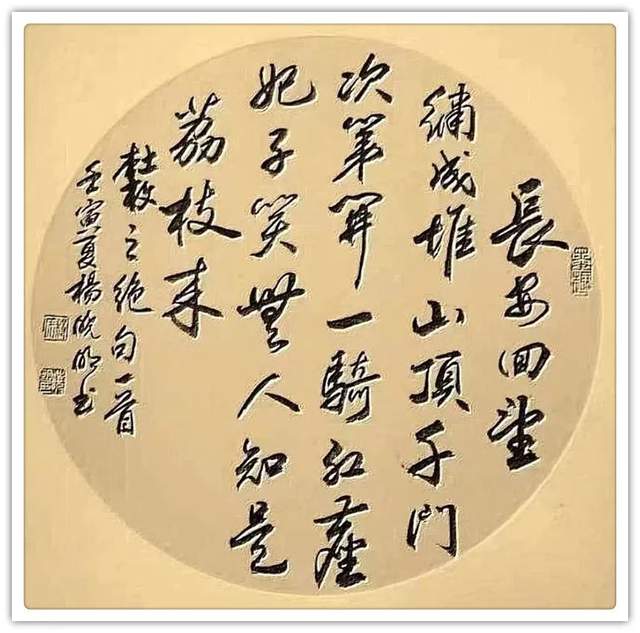 長安回望
繡成堆山頂千門
次第開一騎紅塵
妃子笑無人知是
荔枝来
杜牧之絶句一首
壬寅夏楊曉明书